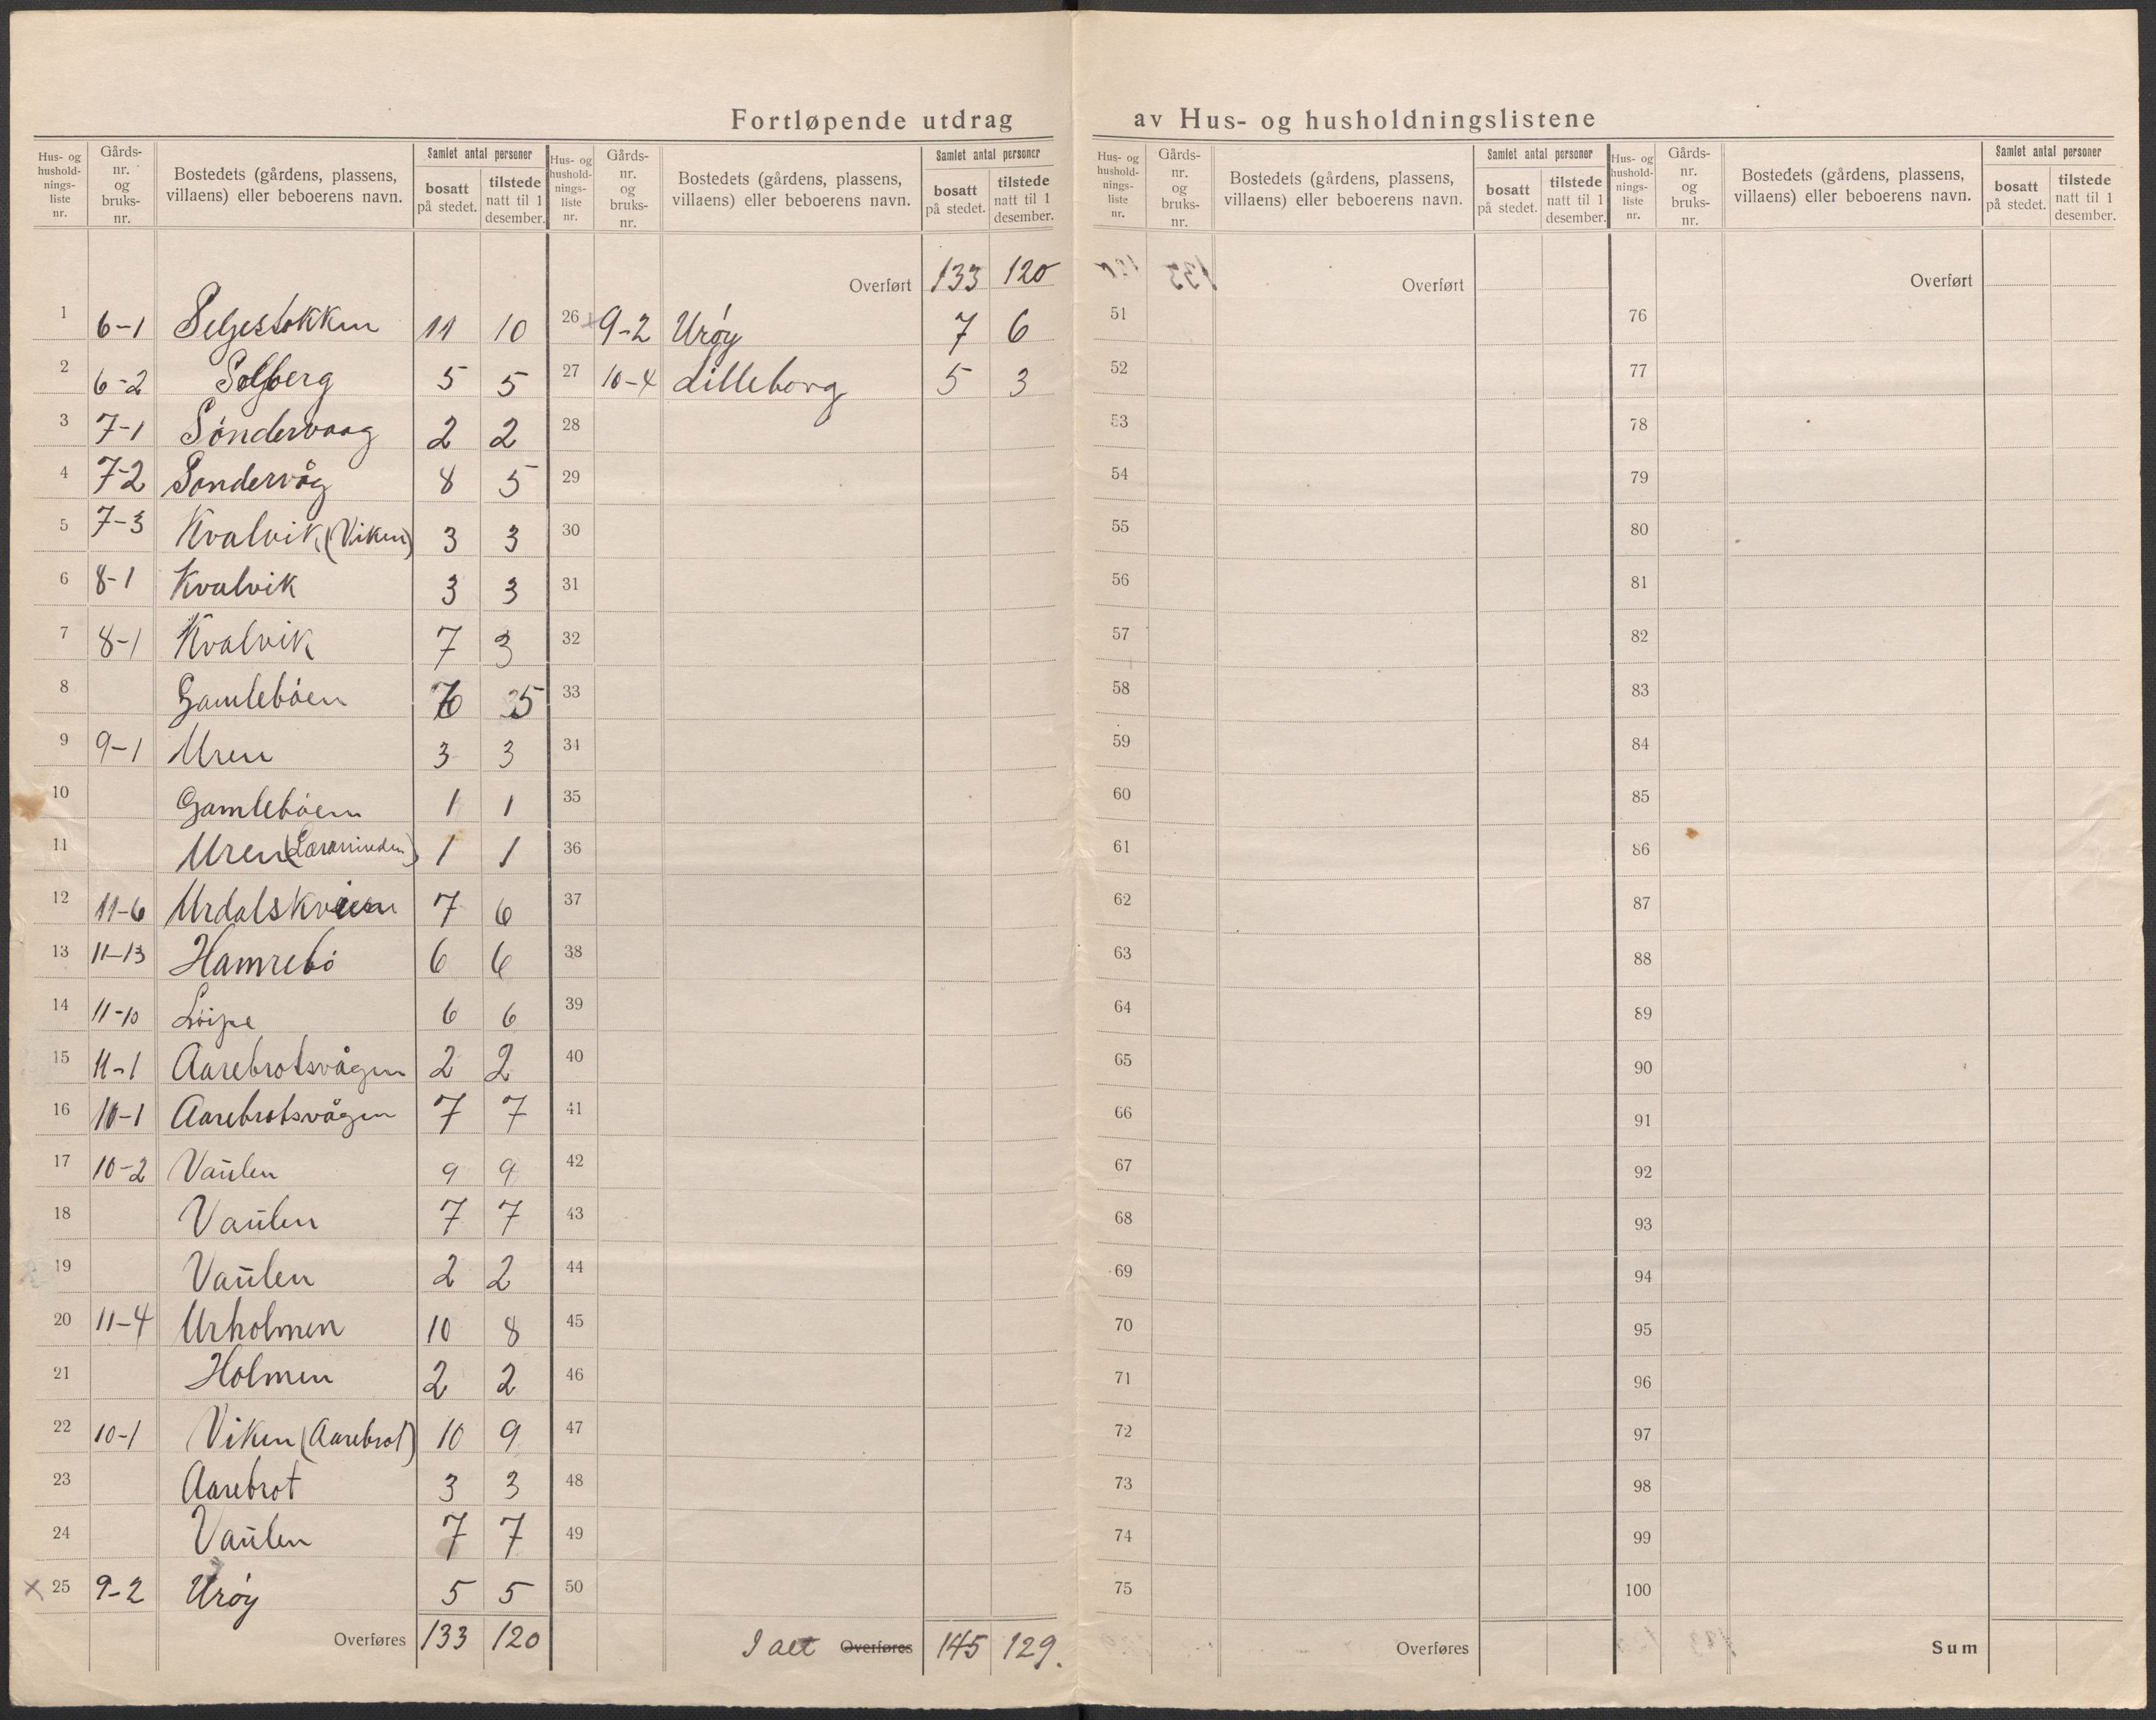 Fortløpende utdrag av Hus- og husholdningslistene
Hus- og hushold-nings-liste nr. Gårds-nr. og bruks-nr. Bostedets (gårdens, plassens, villaens) eller beboerens navn. Samlet antal personer bosatt på stedet. tilstede natt til 1 desember.
1 6-1 Selgestokken 11 10
2 6-2 Solberg 5 5
3 7-1 Søndervaag 2 2
4 7-2 Søndervåg 8 5
5 7-3 Kvalvik (Viken) 3 3
6 8-1 Kvalvik 3 3
7 8-1 Kvalvik 7 3
8 Gamlebøen 6 5
9 9-1 Uren 3 3
10 Gamlebøen 1 1
11 Uren 1 1
12 11-6 7 6
13 11-13 Hamrebø 6 6
14 11-10 Løipe 6 6
15 11-1 Aarebrotsvågen 2 2
16 10-1 Aarebrotsvågen 7 7
17 10-2 Vaulen 9 9
18 Vaulen 7 7
19 Vaulen 2 2
20 11-4 Urholmen 10 8
21 Holmen 2 2
22 10-1 Viken (Aarebrot) 10 9
23 Aarebrot 3 3
24 Vaulen 7 7
x 25 9-2 Urøy 5 5
Overføres 133 120
Hus- og hushold-nings-liste nr. Gårds-nr. og bruks-nr. Bostedets (gårdens, plassens, villaens) eller beboerens navn. Samlet antal personer bosatt på stedet. tilstede natt til 1 desember.
Overført 133 120
26 x 9-2 Urøy 7 6
27 10-4 Lilleborg 5 3
28
29
30
31
32
33
34
35
36
37
38
39
40
41
42
43
44
45
46
47
48
49
50
I alt Overføres 145 129.
Hus- og hushold-nings-liste nr. Gårds-nr. og bruks-nr. Bostedets (gårdens, plassens, villaens) eller beboerens navn. Samlet antal personer bosatt på stedet. tilstede natt til 1 desember.
Overført
51
52
53
54
55
56
57
58
59
60
61
62
63
64
65
66
67
68
69
70
71
72
73
74
75
Overføres
Hus- og hushold-nings-liste nr. Gårds-nr. og bruks-nr. Bostedets (gårdens, plassens, villaens) eller beboerens navn. Samlet antal personer bosatt på stedet. tilstede natt til 1 desember.
Overført
76
77
78
79
80
81
82
83
84
85
86
87
88
89
90
91
92
93
94
95
96
97
98
99
100
Sum